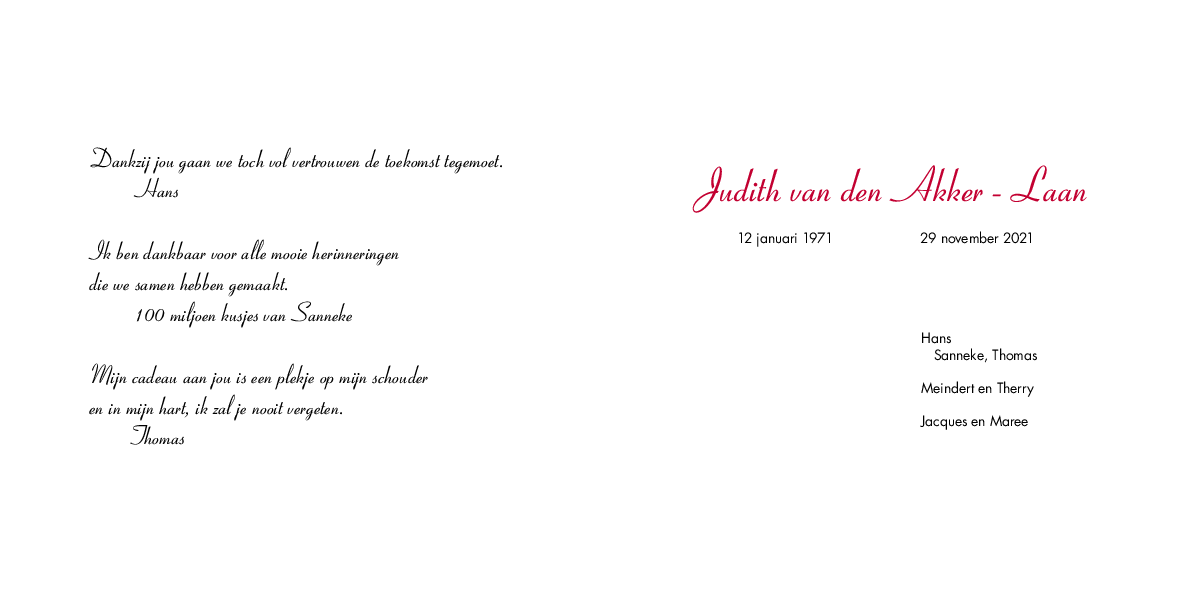 Dankzij jou gaan we toch vol vertrouwen de toekomst tegemoet.
Hans
Ik ben dankbaar voor alle mooie herinneringen
die we samen hebben gemaakt.
100 miljoen kusjes van Sanneke
Mijn cadeau aan jou is een plekje op mijn schouder
en in mijn hart, ik zal je nooit vergeten.
Thomas
Judith van den Akker - Laan
12 januari 1971 29 november 2021
Hans
Sanneke, Thomas
Meindert en Therry
Jacques en Maree